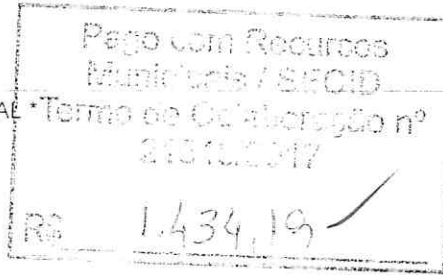 Pago com Recursos
Municipais / SECID
AL *Termo de Colaboração nº
R$ 1.434,19